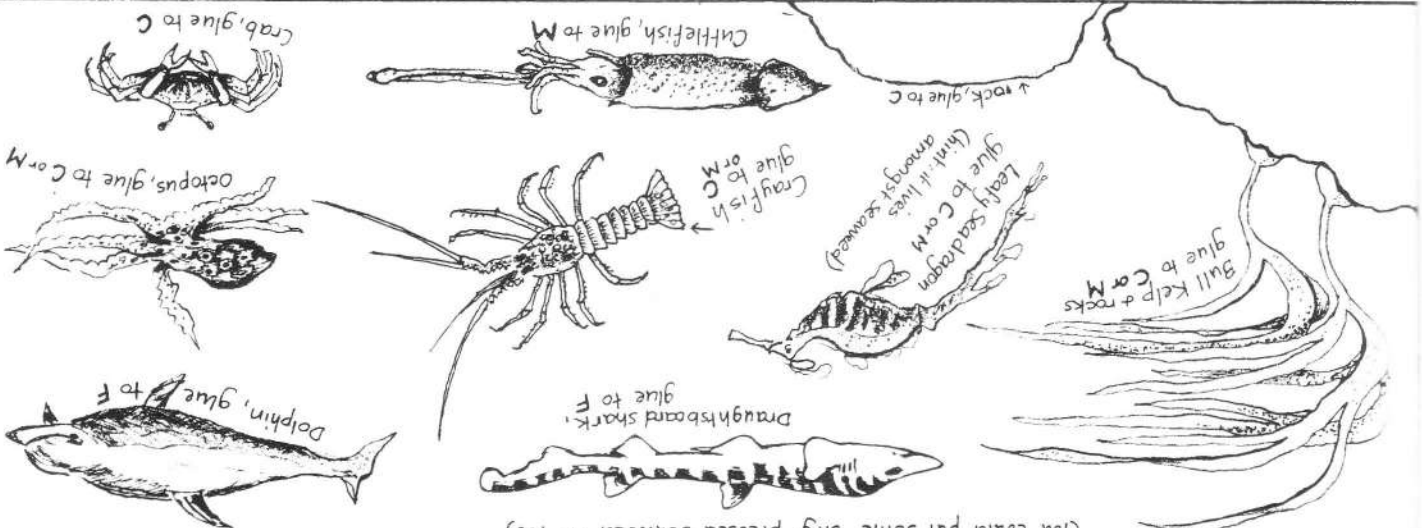 (You could put some pressed seaweed
Draughtsboard shark,
glue to F
Dolphin, glue to F
Bull Kelp + rocks
glue to C or M
Leafy Seadragon
glue to C or M
(hint: it lives
amongst seaweed)
Crayfish
glue to C
or M
Octopus, glue to C or M
rock, glue to C
Cuttlefish, glue to M
Crab, glue to C